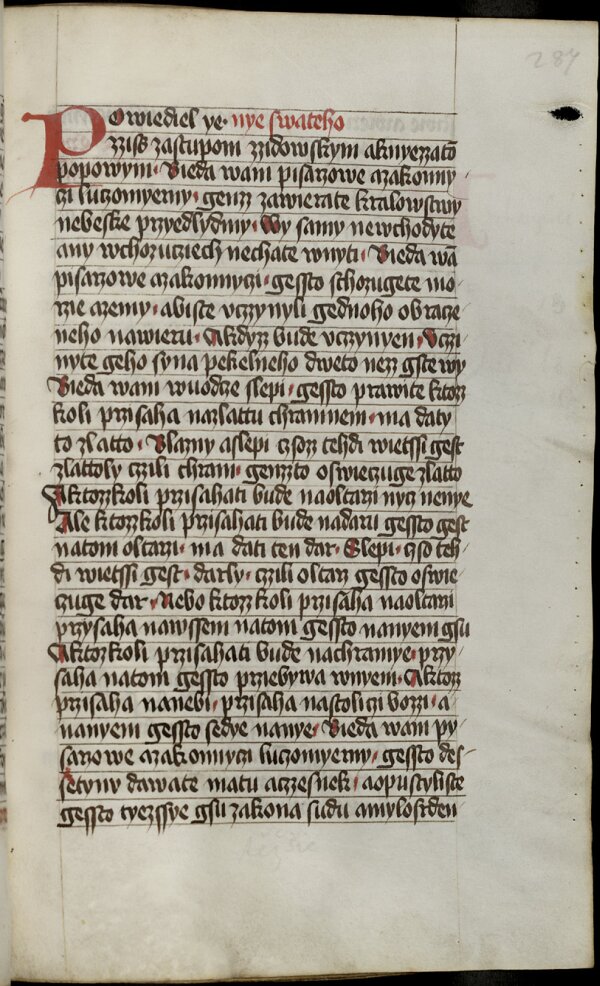 287
Powiediel ye· nye swateho
Przziss zastupom zzidowskym aknyezzatō
popowym· Bieda wam pisarzowe azakonny-
czi luczomyerny· genzz zawierate kralowstwy
nebeske przyedlydmy· wy samy newchodyte
any wchozucziech nechate wnyti· Bieda wā
pisarzowe azakonnyczi· gessto schozugete mo-
rzie azemy· abiste vczynyli gednoho obracze-
neho nawieru· Akdyzz bude vczynyen· Vczi-
nyte geho syna pekelneho dweto nezz gste wy
Bieda wam wuodze slepi· gessto prawite ktozz
koli przisaha nazlattu chramnem· ma daty
to zlatto· Blazny aslepi czsozz tehdi wietssi gest
zlattoly czili chram· genzto oswieczuge zlatto
Aktozzkoli przisahati bude naoltarzi nycz nenye
Ale ktozzkoli przisahati bude nadaru gessto gest
natom oltarzi· ma dati ten dar· Slepi· czso teh-
di wietssi gest· darly· czili oltarz gessto oswie-
czuge dar· Nebo ktozz koli przisaha naoltarzi
przysaha nawssem natom gessto nanyem gsu
Aktozkoli przisahati bude nachramye· przy-
saha natom gessto przebywa wnyem· Aktozz
przisaha nanebi· przisaha nastoliczi bozzi· a
nanyem gessto sedye nanye· Bieda wam py-
sarzowe azakonnyczi luczomyerny· gessto des-
setyny dawate matu aczzesnek· aopustyliste
gessto tyezssye gsu zakona sudu amylosrden-